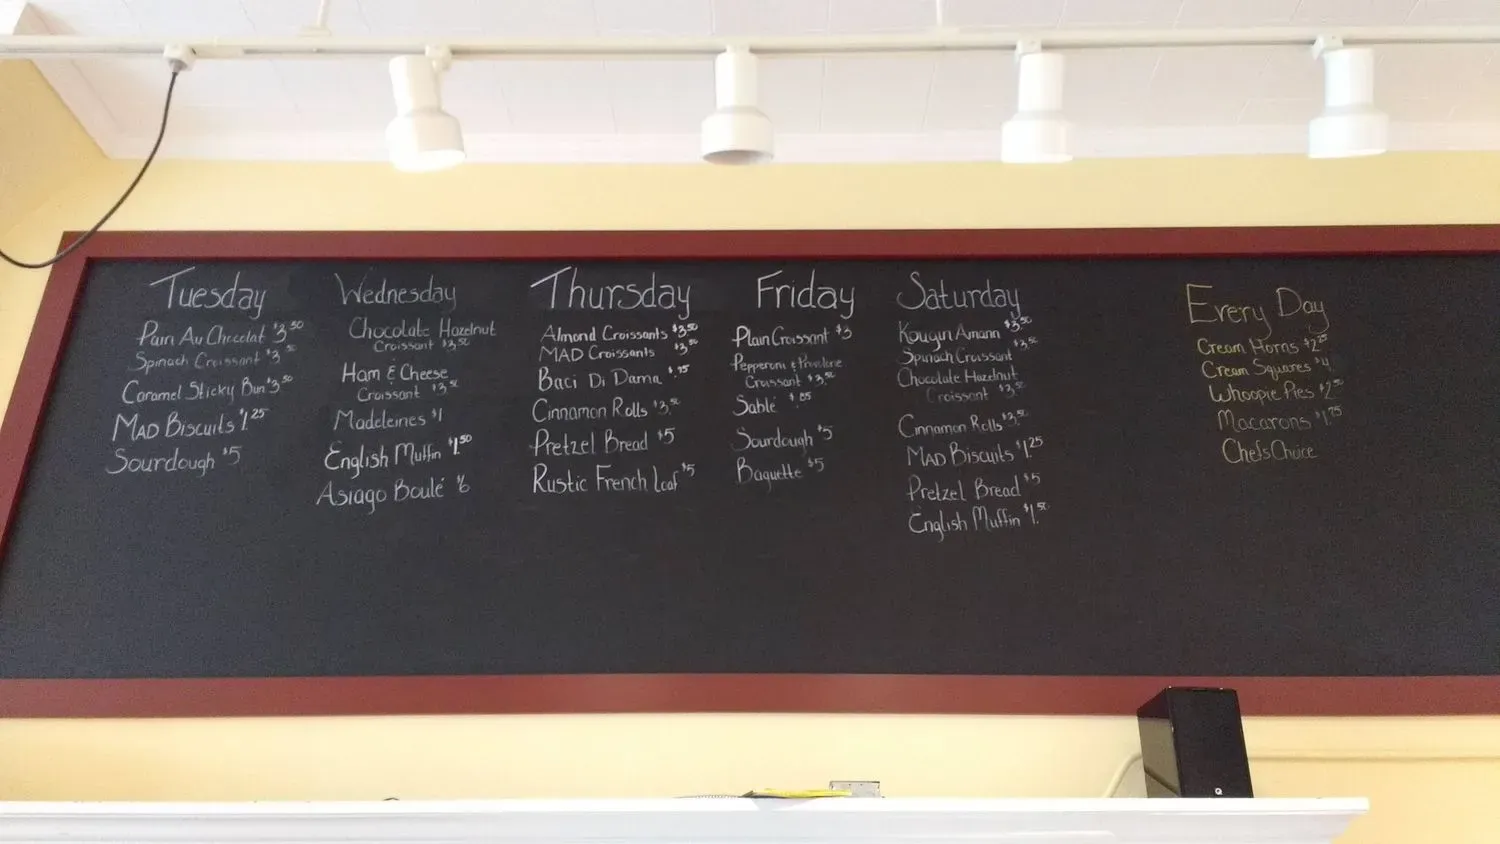 Tuesday
Pain Au Chocolat $3.50
Spinach Croissant $3.50
Caramel Sticky Bun $3.50
MAD Biscuits $1.25
Sourdough $5
Wednesday
Chocolate Hazelnut
Croissant $3.50
Ham & Cheese
Croissant $3.50
Madeleines $1
English Muffin $1.50
Asiago Boulé $6
Thursday
Almond Croissants $3.50
MAD Croissants $3.50
Baci Di Dama $.75
Cinnamon Rolls $3.50
Pretzel Bread $5
Rustic French Loaf $5
Friday
Plain Croissant $3
Pepperoni & Provolone
Croissant $3.50
Sablé $.85
Sourdough $5
Baguette $5
Saturday
Kougin Amann $3.50
Spinach Croissant $3.50
Chocolate Hazelnut
Croissant $3.50
Cinnamon Rolls $3.50
MAD Biscuits $1.25
Pretzel Bread $5
English Muffin $1.50
Every Day
Cream Horns $2.25
Cream Squares $4
Whoopie Pies $2.50
Macarons $1.75
Chefs Choice